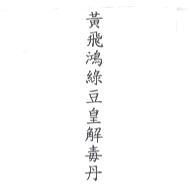 黃飛鴻綠豆皇解毒丹